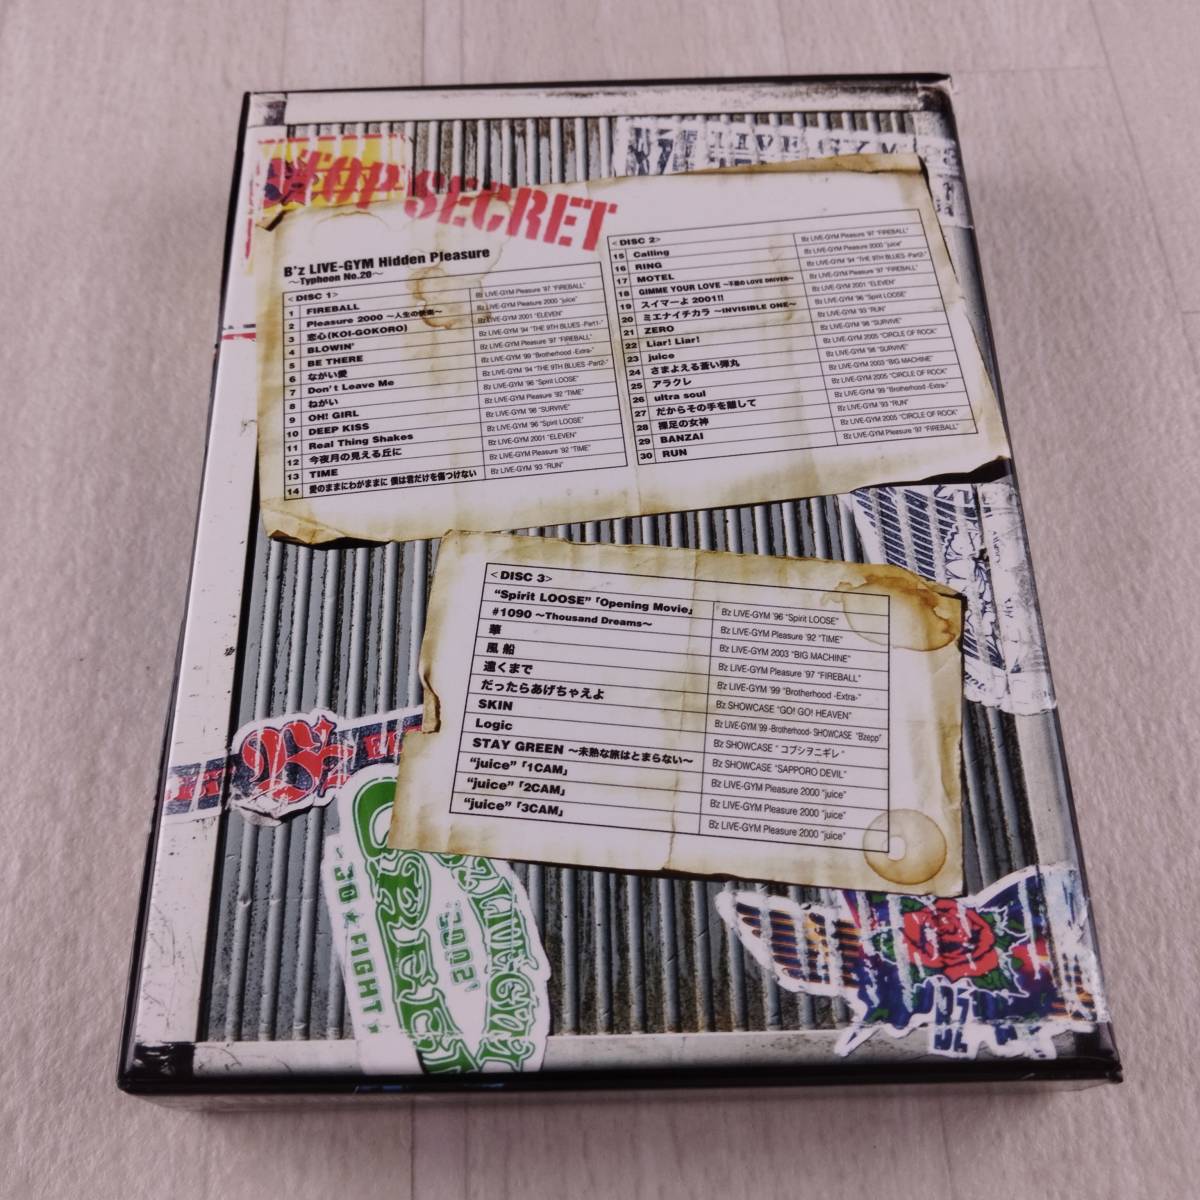 TOP SECRET
B'z LIVE-GYM Hidden Pleasure
～Typhoon No.20～
<DISC 1>
1 FIREBALL B'z LIVE-GYM Pleasure '97 "FIREBALL"
2 Pleasure 2000 ～人生の快楽～ B'z LIVE-GYM Pleasure 2000 "juice"
3 恋心(KOI-GOKORO) B'z LIVE-GYM 2001 "ELEVEN"
4 BLOWIN' B'z LIVE-GYM '94 "THE 9TH BLUES -Part1-"
5 BE THERE B'z LIVE-GYM Pleasure '97 "FIREBALL"
6 ながい愛 B'z LIVE-GYM '99 "Brotherhood -Extra-"
7 Don't Leave Me B'z LIVE-GYM '94 "THE 9TH BLUES -Part2-"
8 ねがい B'z LIVE-GYM '96 "Spirit LOOSE"
9 OH! GIRL B'z LIVE-GYM Pleasure '92 "TIME"
10 DEEP KISS B'z LIVE-GYM '98 "SURVIVE"
11 Real Thing Shakes B'z LIVE-GYM '96 "Spirit LOOSE"
12 今夜月の見える丘に B'z LIVE-GYM 2001 "ELEVEN"
13 TIME B'z LIVE-GYM Pleasure '92 "TIME"
14 愛のままにわがままに 僕は君だけを傷つけない B'z LIVE-GYM '93 "RUN"
<DISC 2>
15 Calling B'z LIVE-GYM Pleasure '97 "FIREBALL"
16 RING B'z LIVE-GYM Pleasure 2000 "juice"
17 MOTEL B'z LIVE-GYM '94 "THE 9TH BLUES -Part2-"
18 GIMME YOUR LOVE ～不屈のLOVE DRIVER～ B'z LIVE-GYM Pleasure '97 "FIREBALL"
19 スイマーよ 2001!! B'z LIVE-GYM 2001 "ELEVEN"
20 ミエナイチカラ ～INVISIBLE ONE～ B'z LIVE-GYM '96 "Spirit LOOSE"
21 ZERO B'z LIVE-GYM '93 "RUN"
22 Liar! Liar! B'z LIVE-GYM '98 "SURVIVE"
23 juice B'z LIVE-GYM 2005 "CIRCLE OF ROCK"
24 さまよえる蒼い弾丸 B'z LIVE-GYM '98 "SURVIVE"
25 アラクレ B'z LIVE-GYM 2003 "BIG MACHINE"
26 ultra soul B'z LIVE-GYM 2005 "CIRCLE OF ROCK"
27 だからその手を離して B'z LIVE-GYM '99 "Brotherhood -Extra-"
28 裸足の女神 B'z LIVE-GYM '93 "RUN"
29 BANZAI B'z LIVE-GYM 2005 "CIRCLE OF ROCK"
30 RUN B'z LIVE-GYM Pleasure '97 "FIREBALL"
<DISC 3>
"Spirit LOOSE"「Opening Movie」 B'z LIVE-GYM '96 "Spirit LOOSE"
#1090 ～Thousand Dreams～ B'z LIVE-GYM Pleasure '92 "TIME"
華 B'z LIVE-GYM 2003 "BIG MACHINE"
風船 B'z LIVE-GYM Pleasure '97 "FIREBALL"
遠くまで B'z LIVE-GYM '99 "Brotherhood -Extra-"
だったらあげちゃえよ B'z SHOWCASE "GO! GO! HEAVEN"
SKIN B'z LIVE-GYM '99 -Brotherhood- SHOWCASE "B'zepp"
Logic B'z SHOWCASE "コブシヲニギレ"
STAY GREEN ～未熟な旅はとまらない～ B'z SHOWCASE "SAPPORO DEVIL"
"juice"「1CAM」 B'z LIVE-GYM Pleasure 2000 "juice"
"juice"「2CAM」 B'z LIVE-GYM Pleasure 2000 "juice"
"juice"「3CAM」 B'z LIVE-GYM Pleasure 2000 "juice"
GREEN
2002
FIGHT
B'z